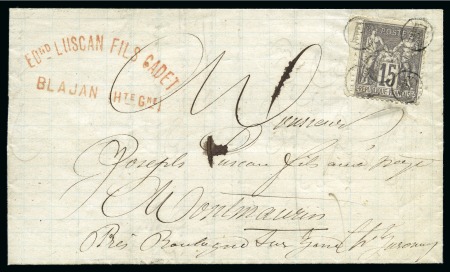 EDRD LUSCAN FILS CADET
BLAJAN (HTE GNE)
POSTE
15
Monsieur
Joseph Luscan fils ainé
Montmaurin
Près Boulogne sur Gesse Hte Garonne